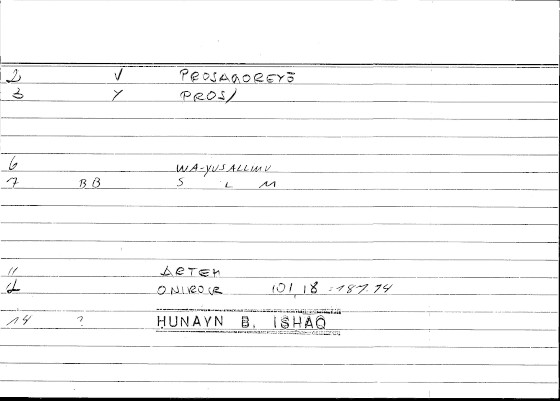 2 V PROSAGOREYŌ
3 Y PROS/
6 WA-YUSALLIMU
7 BB S L M
11 ARTEM
12 ONIROCR 101,18 = 187.14
14 ? HUNAYN B. ISHAQ